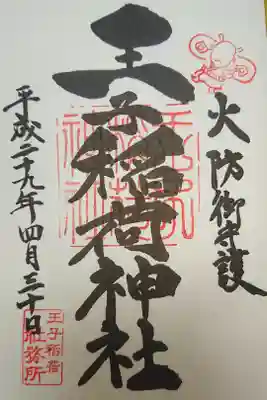 火防御守護
王子稲荷神社
平成二十九年四月三十日
王子稲荷
社務所